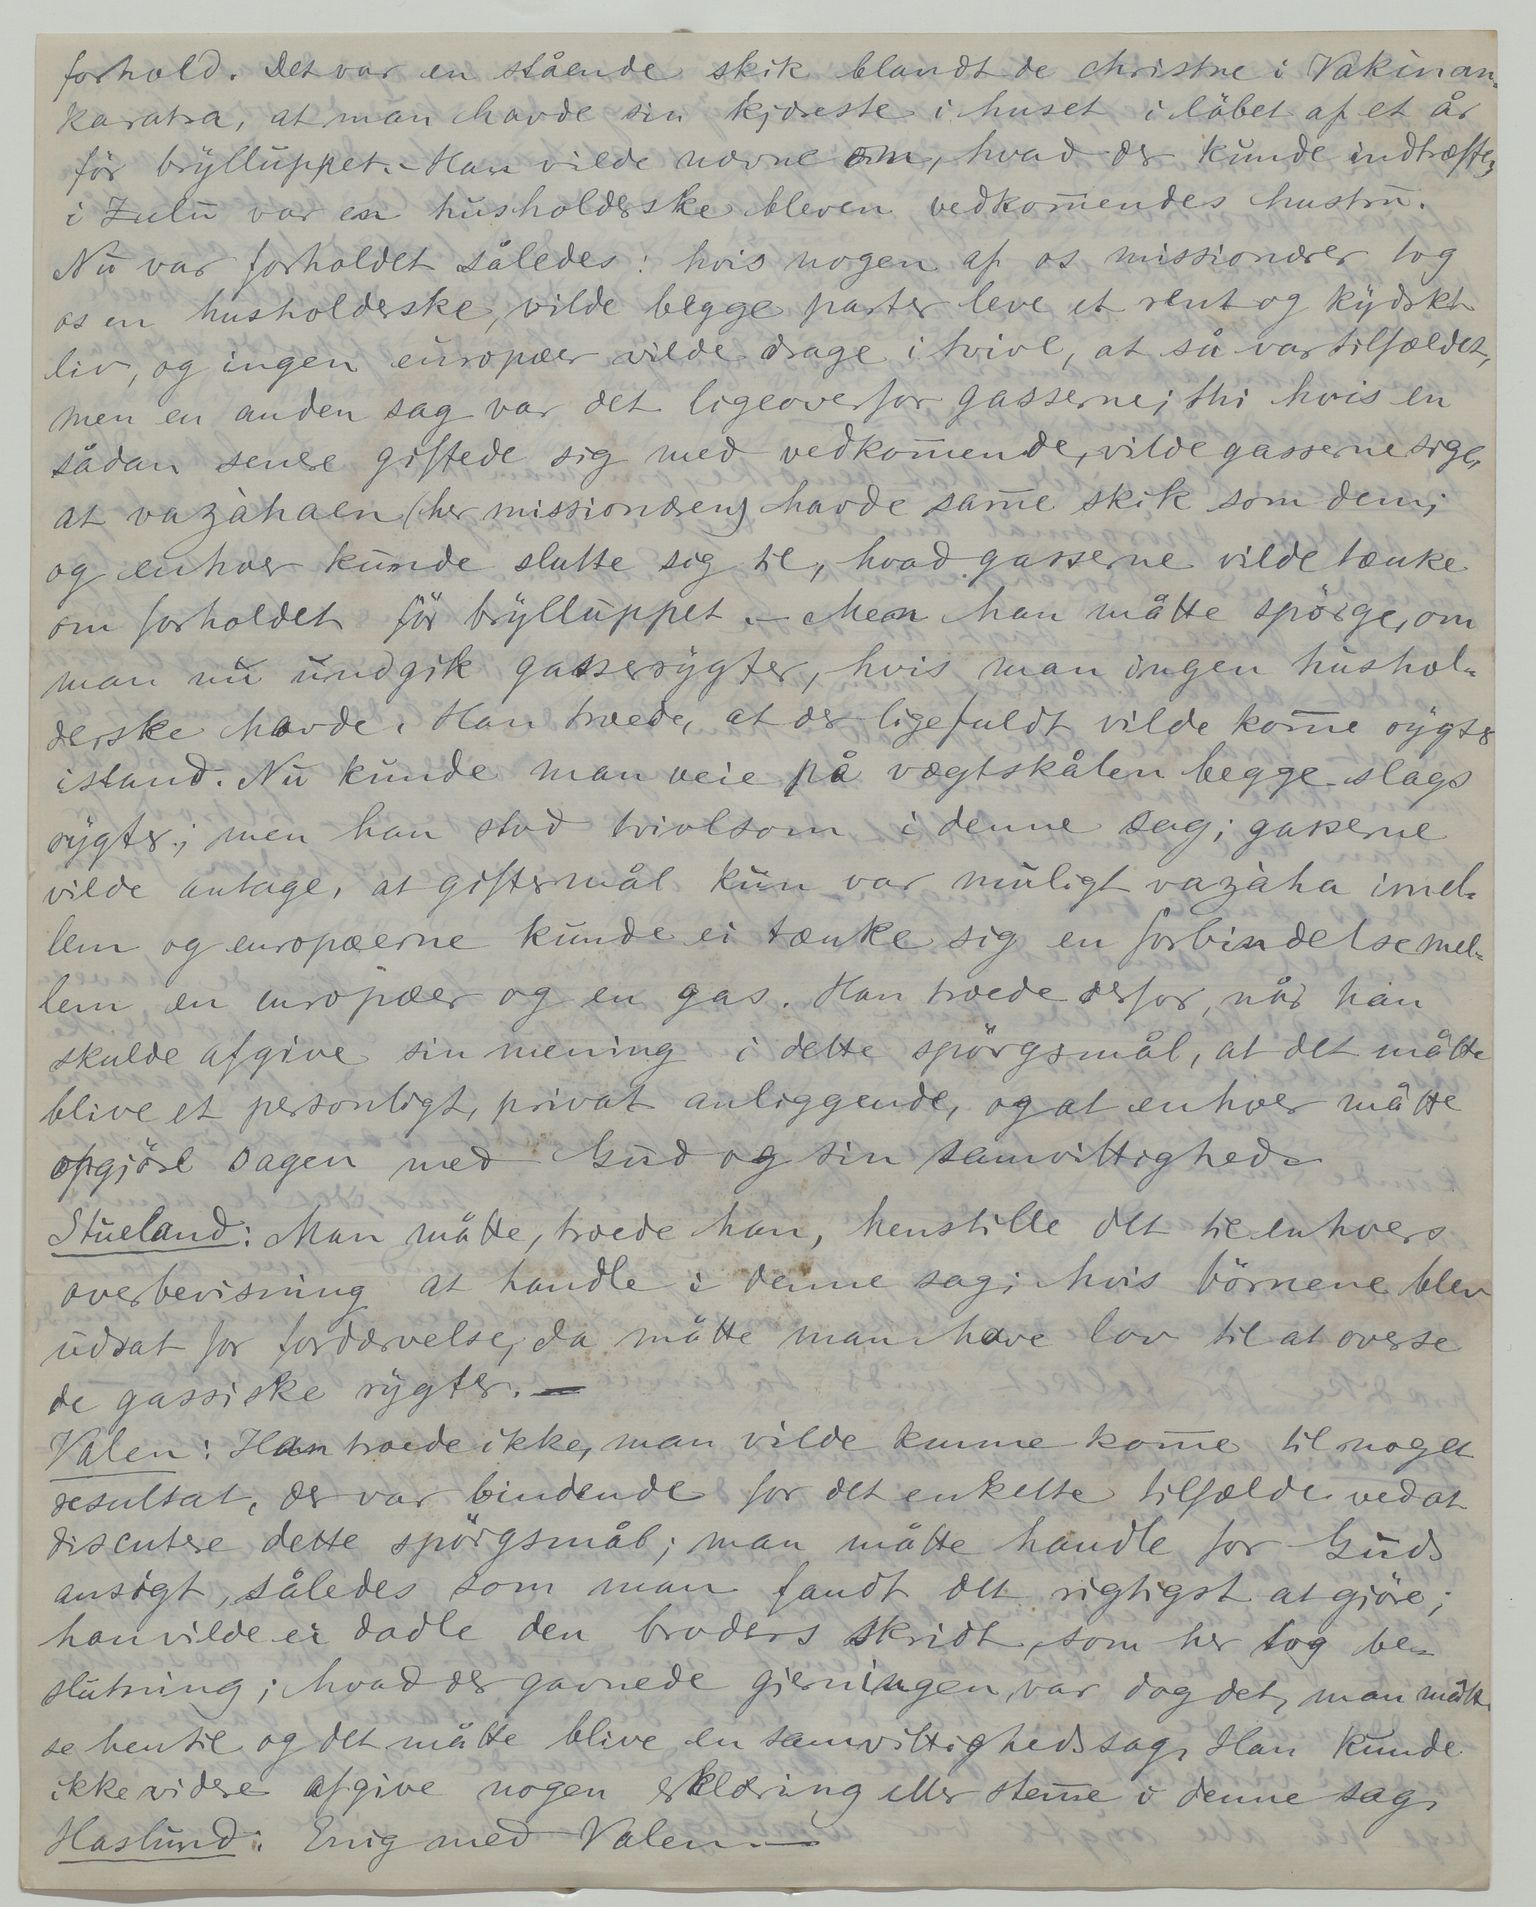 forhold. Det var en stående skik blandt de christne i Vakinan-
karatra, at man havde sin kjæreste i huset i löbet af et år
för brylluppet. - Han vilde nævne om, hvad der kunde indtræffe,
i Zulu var en husholderske bleven vedkom̄endes hustru.
Nu var forholdet således: hvis nogen af os missionærer tog
os en husholderske, vilde begge parter leve et rent og kydskt
liv, og ingen europæer vilde drage i tvivl, at så var tilfældet,
men en anden sag var det ligeoverfor gasserne; thi hvis en
sådan senere giftede sig med vedkom̄ende, vilde gasserne sige,
at vazàhaen (her missionæren) havde sam̄e skik som dem;
og enhver kunde slutte sig til, hvad gasserne vilde tænke
om forholdet för brylluppet. - Men han måtte spörge, om
man nu undgik gasserygter, hvis man ingen hushol-
derske havde. Han troede, at der ligefuldt vilde kom̄e rygter
istand. Nu kunde man veie på vægtskålen begge slags
rygter; men han stod tvivlsom i denne sag; gasserne
vilde antage, at giftermål kun var muligt vazàha imel-
lem og europæerne kunde ei tænke sig en forbindelse mel-
lem en europæer og en gas. Han troede derfor, når han
skulde afgive sin mening i dette spörgsmål, at det måtte
blive et personligt, privat anliggende, og at enhver måtte
opgjöre sagen med Gud og sin samvittighed. -
Stueland: Man måtte, troede han, henstille det til enhvers
overbevisning at handle i denne sag; hvis börnene blev
udsat for fordærvelse, da måtte man have lov til at overse
de gassiske rygter. -
Valen: Han troede ikke, man vilde kunne kom̄e til noget
resultat, der var bindende for det enkelte tilfælde ved at
discutere dette spörgsmål; man måtte handle for Guds
ansigt, således som man fandt det rigtigst at gjöre;
han vilde ei dadle den broders skridt, som her tog be-
slutning; hvad der gavnede gjerningen, var dog det, man måtte
se hen til og det måtte blive en samvittighedssag. Han kunde
ikke videre afgive nogen erklæring eller stem̄e i denne sag.
Haslund: Enig med Valen. -